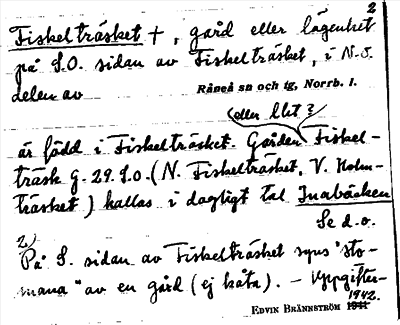 2
Fiskelträsket +, gård eller lägenhet
på S.O. sidan av Fiskelträsket, i N.O.
delen av Råneå sn och tg, Norrb. l.
(eller lht?)
är född i Fiskelträsket. Gården Fiskel-
träsk g. 29. S.O. (N. Fiskelträsket, V. Holm-
träsket) kallas i dagligt tal Inabäcken
Se d.o.
2)
På S. sidan av Fiskelträsket syns "sto-
mana" av en gård (ej kåta). - Uppgifter-
1942.
EDVIN BRÄNNSTRÖM 1941